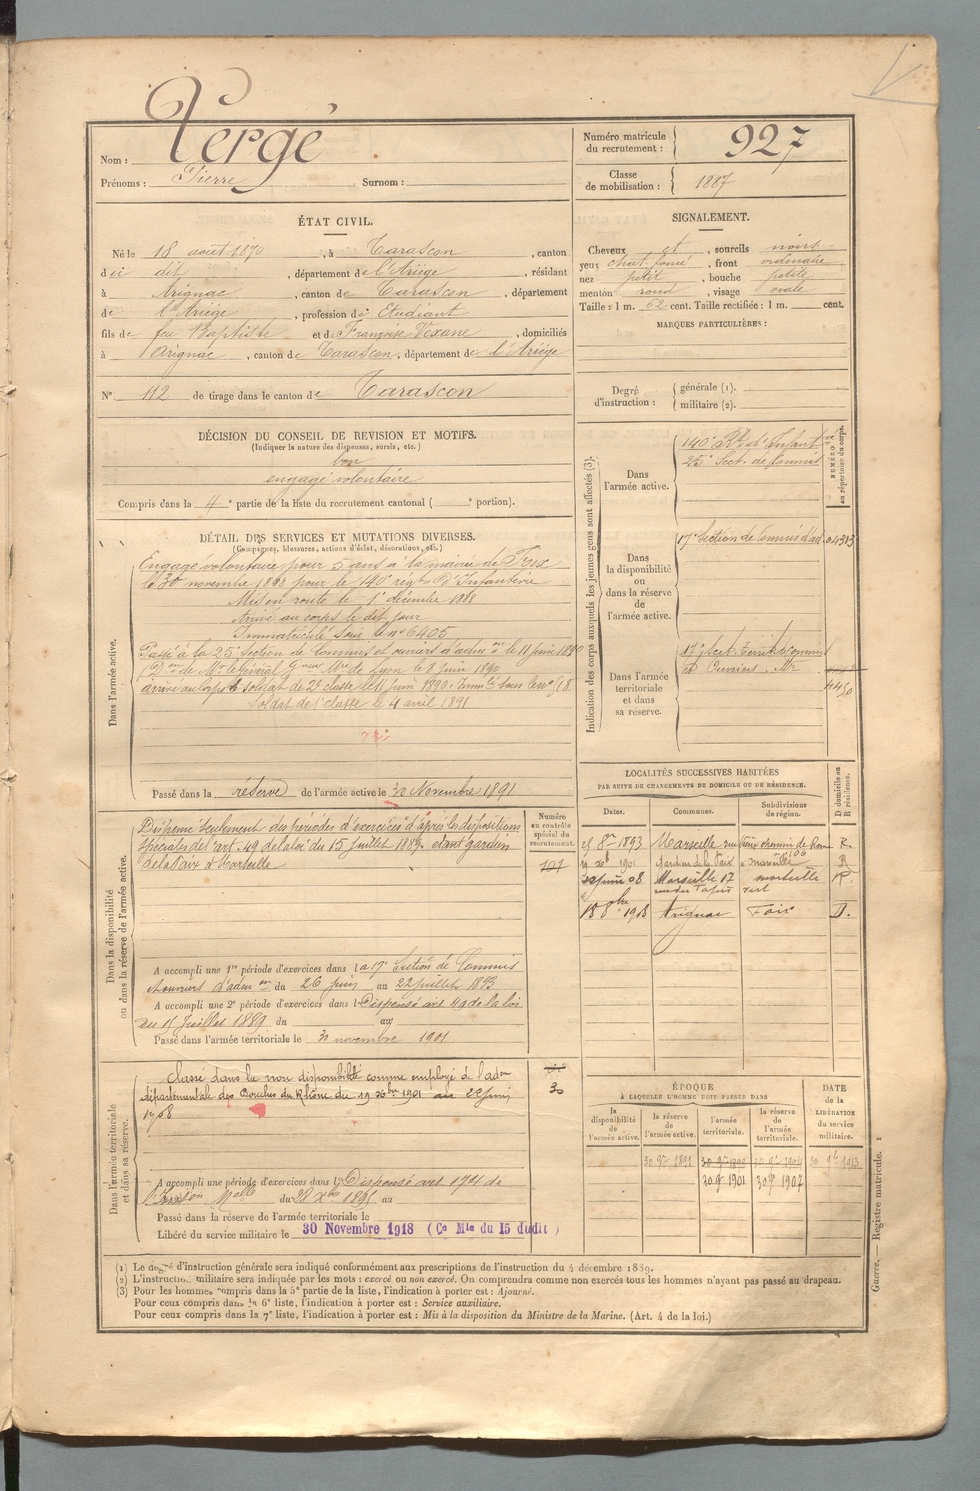 Nom : Vergé
Prénoms : Pierre Surnom :
Numéro matricule du recrutement : 927
Classe de mobilisation : 1887
ÉTAT CIVIL.
Né le 18 août 1870, à Tarascon, canton
du dit, département de l'Ariège, résidant
à Arignac, canton de Tarascon, département
de l'Ariège, profession d' Etudiant
fils de feu Baptiste et de Françoise, domiciliés
à Arignac, canton de Tarascon, département de l'Ariège
N° 112 de tirage dans le canton de Tarascon
SIGNALEMENT.
Cheveux et, sourcils noirs
yeux chat. foncé, front ordinaire
nez petit, bouche petite
menton rond, visage ovale
Taille : 1 m. 62 cent. Taille rectifiée : 1 m. cent.
MARQUES PARTICULIÈRES :
Degré d'instruction : générale (1).
militaire (2).
DÉCISION DU CONSEIL DE REVISION ET MOTIFS.
(Indiquer la nature des dispenses, sursis, etc.)
bon
engagé volontaire
Compris dans la 4e partie de la liste du recrutement cantonal ( e portion).
DÉTAIL DES SERVICES ET MUTATIONS DIVERSES.
(Campagnes, blessures, actions d'éclat, décorations, etc.)
Dans l'armée active.
Engagé volontaire pour 3 ans à la mairie de Foix
le 30 novembre 1888 pour le 140e régt d'Infanterie
Mis en route le 1er décembre 1888
Arrivé au corps le dit jour
Immatriculé sous le n° 6405
Passé à la 25e Section de Commis et ouvriers d'admon le 11 juin 1890
Don de Mr le Général Gneur Mre de Lyon le 8 juin 1890
arrivé au corps et soldat de 2e classe le 11 juin 1890.
Soldat de 1e classe le 4 avril 1891
Passé dans la réserve de l'armée active le 30 Novembre 1891
Indication des corps auxquels les jeunes gens sont affectés (3).
NUMÉRO au répertoire du corps.
Dans l'armée active.
140e Rt d'Infant
25e Sect. de Commis
Dans la disponibilité ou dans la réserve de l'armée active.
17e Section de Commis d'ad 04313
Dans l'armée territoriale et dans sa réserve.
17e Sect. territ. de Commis
et Ouvriers. Mre
4450
Dans la disponibilité ou dans la réserve de l'armée active.
Numéro au contrôle spécial du recrutement.
Dispensé seulement des périodes d'exercices d'après les dispositions
spéciales de l'art. 49 de la loi du 15 juillet 1889. étant gardien
de la Paix à Marseille
A accompli une 1re période d'exercices dans la 17e Section de Commis
et ouvriers d'admon du 26 juin au 22 juillet 1893
A accompli une 2e période d'exercices dans l Dispensé art 49 de la loi
du 15 Juillet 1889 du au
Passé dans l'armée territoriale le 30 novembre 1901
LOCALITÉS SUCCESSIVES HABITÉES
PAR SUITE DE CHANGEMENTS DE DOMICILE OU DE RÉSIDENCE.
Dates. Communes. Subdivisions de région. D domicile ou R résidence.
1893 Marseille chemin de Rome R.
1901 Gardien de la Paix à Marseille R
juin 08 Marseille 17 marseille R.
vert
18 1908 Arignac Foix D.
Dans l'armée territoriale et dans sa réserve.
Classé dans la non disponibilité comme employé de l'admon
départementale des Bouches du Rhône du 19 Xbre 1901 au 22 juin
1908
30
A accompli une période d'exercices dans l Dispensé
du 28 Xbre 1895 au
Passé dans la réserve de l'armée territoriale le
Libéré du service militaire le 30 Novembre 1918 (Ce Mle du 15 dudit)
ÉPOQUE
À LAQUELLE L'HOMME DOIT PASSER DANS
la disponibilité de l'armée active.
la réserve de l'armée active.
l'armée territoriale.
la réserve de l'armée territoriale.
DATE de la LIBÉRATION du service militaire.
30 9re 1891 30 9re 1898 30 9re 1904 30 9bre 1913
30 9re 1901 30 9re 1907
(1) Le degré d'instruction générale sera indiqué conformément aux prescriptions de l'instruction du 4 décembre 1889.
(2) L'instruction militaire sera indiquée par les mots : exercé ou non exercé. On comprendra comme non exercés tous les hommes n'ayant pas passé au drapeau.
(3) Pour les hommes compris dans la 5e partie de la liste, l'indication à porter est : Ajourné.
Pour ceux compris dans la 6e liste, l'indication à porter est : Service auxiliaire.
Pour ceux compris dans la 7e liste, l'indication à porter est : Mis à la disposition du Ministre de la Marine. (Art. 4 de la loi.)
Guerre. — Registre matricule. 1